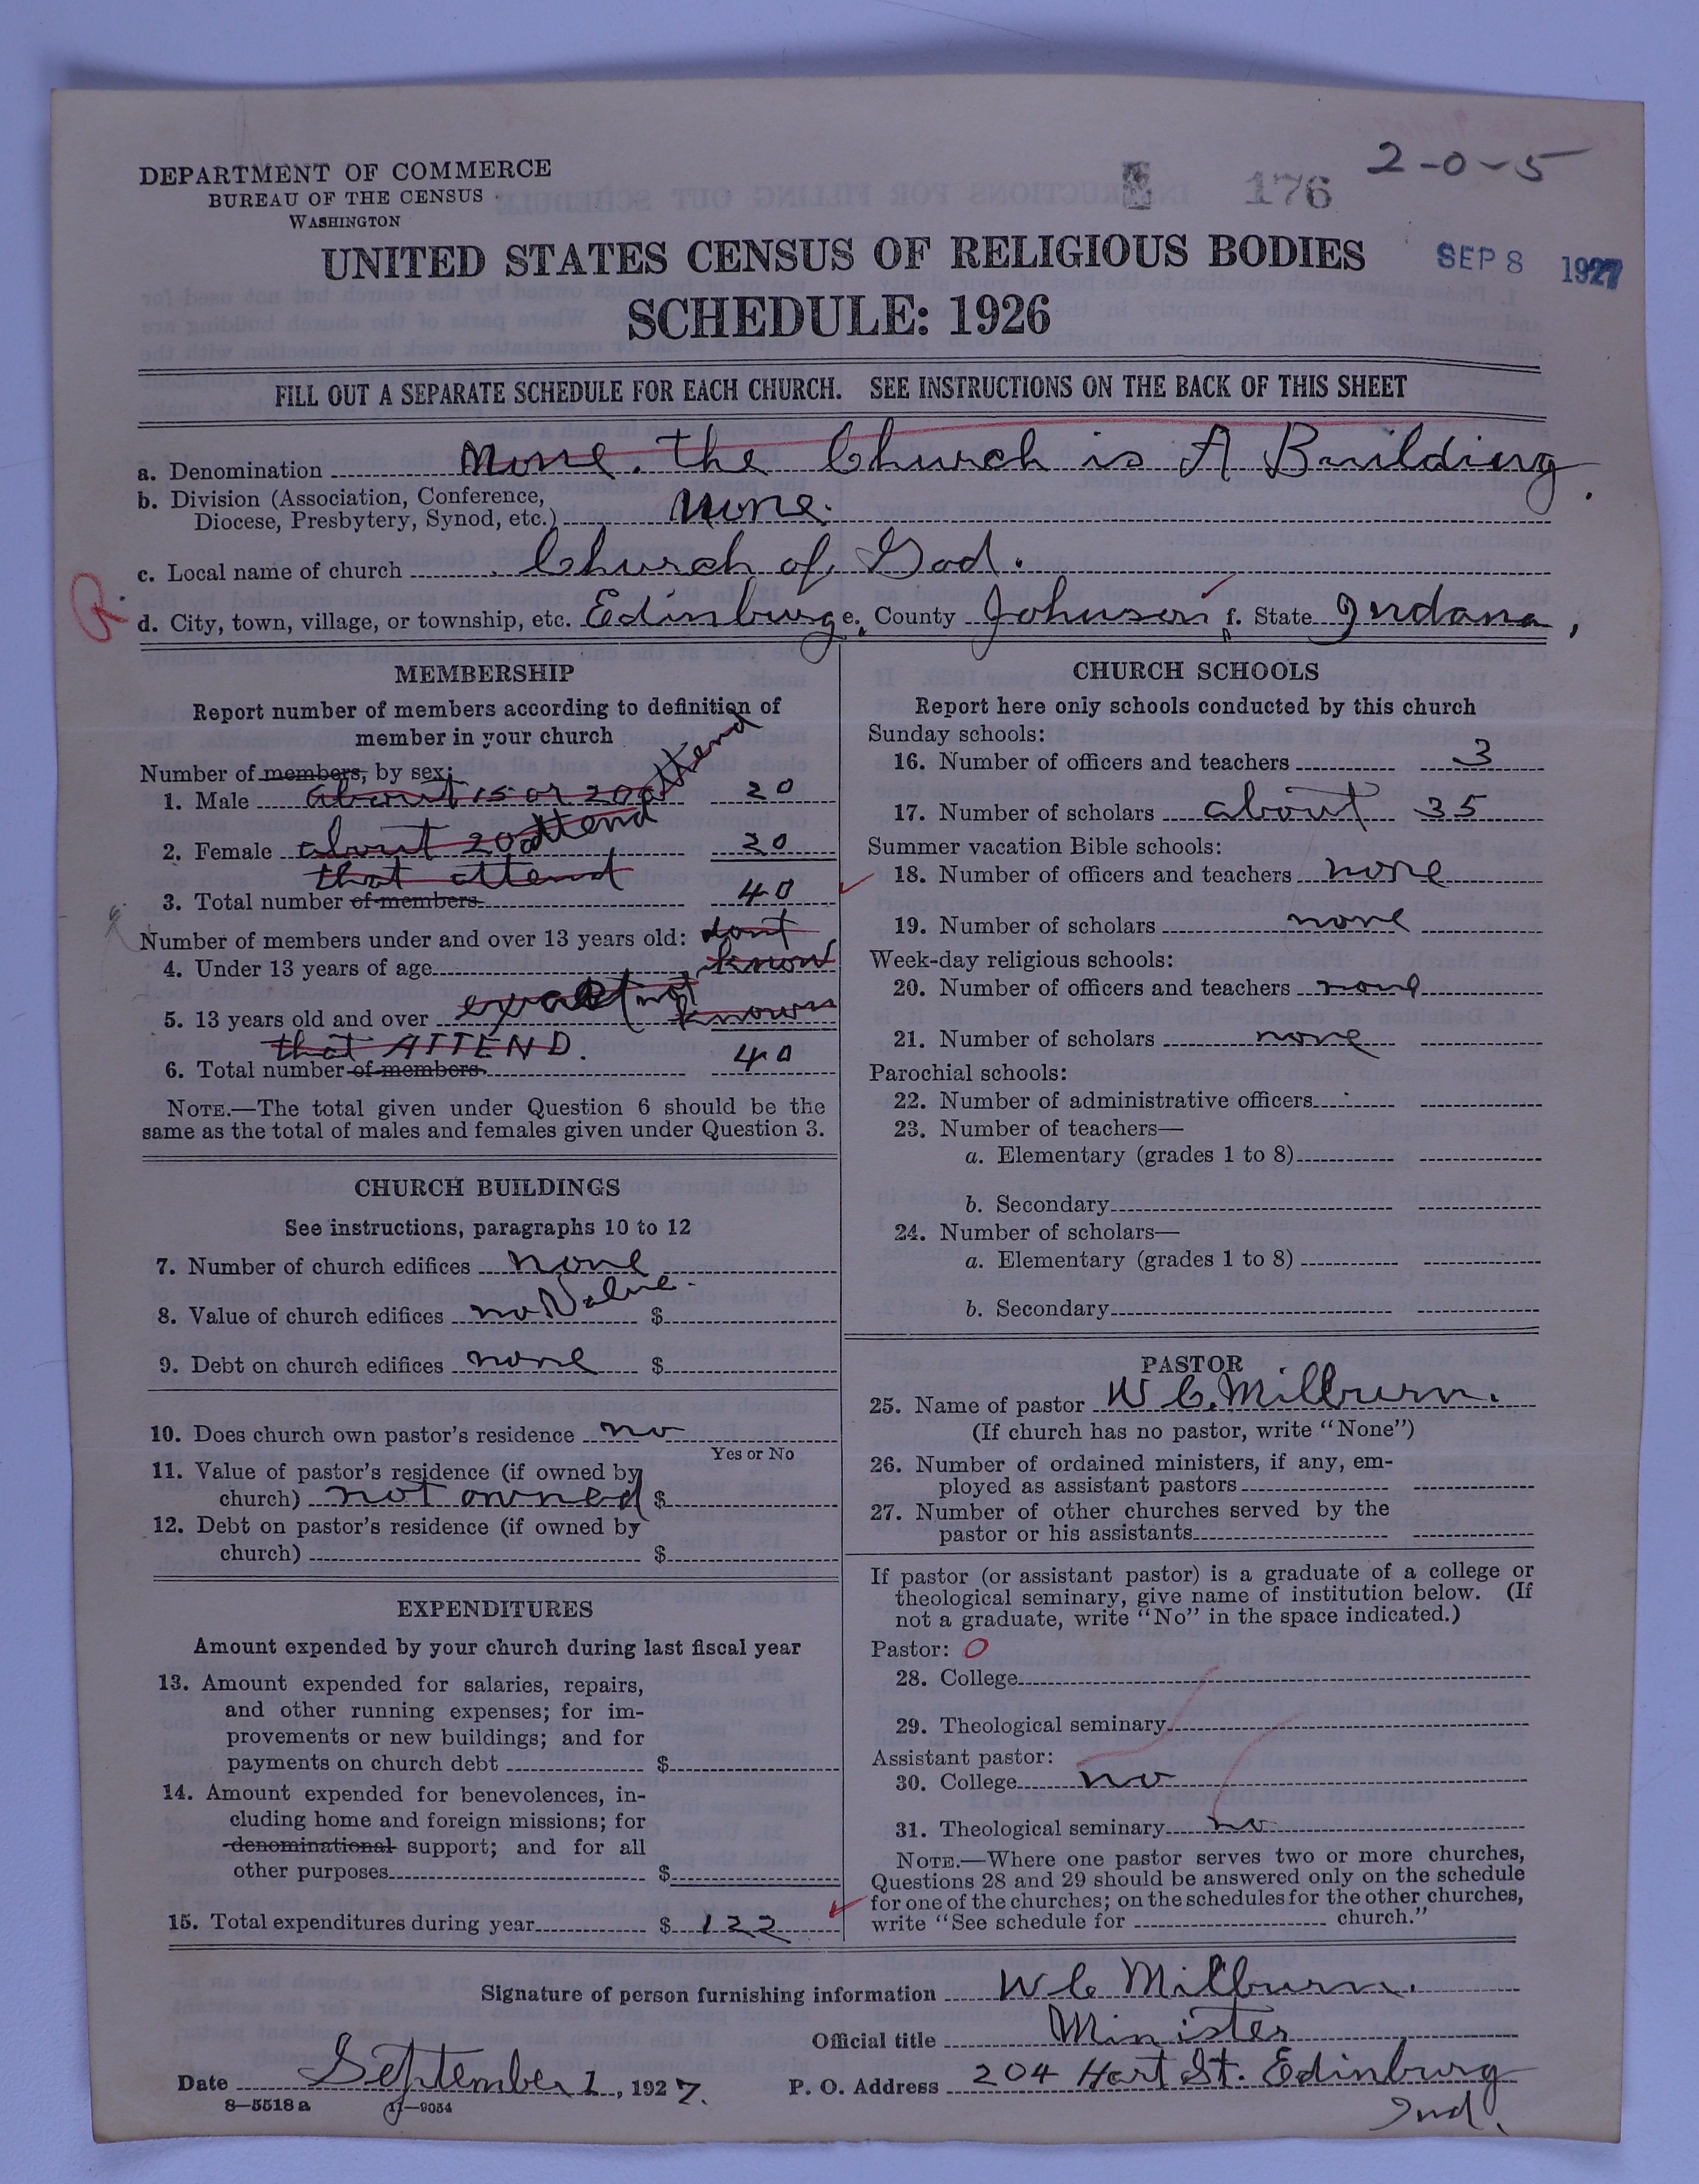 2-0-5
176
DEPARTMENT OF COMMERCE
BUREAU OF THE CENSUS
WASHINGTON
UNITED STATES CENSUS OF RELIGIOUS BODIES
SEP 8 1927
SCHEDULE: 1926
FILL OUT A SEPARATE SCHEDULE FOR EACH CHURCH. SEE INSTRUCTIONS ON THE BACK OF THIS SHEET
a. Denomination None. the Church is A Building.
b. Division (Association, Conference,
Diocese, Presbytery, Synod, etc.) none.
c. Local name of church Church of God.
d. City, town, village, or township, etc. Edinburg e. County Johnson f. State Indana,
MEMBERSHIP
Report number of members according to definition of
member in your church
Number of members, by sex:
1. Male about 15 or 20 attend 20
2. Female about 20 attend 20
that attend
3. Total number of members 40
Number of members under and over 13 years old: dont
4. Under 13 years of age know
5. 13 years old and over exact not known
that ATTEND.
6. Total number of members 40
NOTE.—The total given under Question 6 should be the
same as the total of males and females given under Question 3.
CHURCH BUILDINGS
See instructions, paragraphs 10 to 12
7. Number of church edifices none
8. Value of church edifices no Value. $
9. Debt on church edifices none $
10. Does church own pastor's residence no
Yes or No
11. Value of pastor's residence (if owned by
church) not owned $
12. Debt on pastor's residence (if owned by
church) $
EXPENDITURES
Amount expended by your church during last fiscal year
13. Amount expended for salaries, repairs,
and other running expenses; for im-
provements or new buildings; and for
payments on church debt $
14. Amount expended for benevolences, in-
cluding home and foreign missions; for
denominational support; and for all
other purposes $
15. Total expenditures during year $ 122
CHURCH SCHOOLS
Report here only schools conducted by this church
Sunday schools:
16. Number of officers and teachers 3
17. Number of scholars about 35
Summer vacation Bible schools:
18. Number of officers and teachers none
19. Number of scholars none
Week-day religious schools:
20. Number of officers and teachers none
21. Number of scholars none
Parochial schools:
22. Number of administrative officers
23. Number of teachers—
a. Elementary (grades 1 to 8)
b. Secondary
24. Number of scholars—
a. Elementary (grades 1 to 8)
b. Secondary
PASTOR
25. Name of pastor W C. Milburn.
(If church has no pastor, write "None")
26. Number of ordained ministers, if any, em-
ployed as assistant pastors
27. Number of other churches served by the
pastor or his assistants
If pastor (or assistant pastor) is a graduate of a college or
theological seminary, give name of institution below. (If
not a graduate, write "No" in the space indicated.)
Pastor: O
28. College
29. Theological seminary
Assistant pastor:
30. College no
31. Theological seminary no
NOTE.—Where one pastor serves two or more churches,
Questions 28 and 29 should be answered only on the schedule
for one of the churches; on the schedules for the other churches,
write "See schedule for church."
Signature of person furnishing information W C Milburn.
Official title Minister
Date September 1, 1927. P. O. Address 204 Hart St. Edinburg
Ind.
8—5518a 11—9054